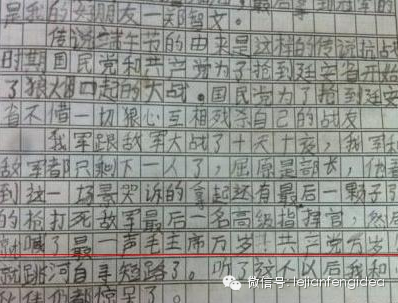 是我的好朋友一郑智文。
传说端午节的由来是这样的传说抗战
时期国民党和共产党为了抢到延安省开始
了狼烟四起的大战。国民党为了抢到延安
省不借一切狠心互相残杀自己的战友
我军跟敌军大战了十天十夜,我军和
敌军都只剩下一人了,屈原是部长,他看
到这一场景哭诉的拿起还有最后一颗子
的枪打死敌军最后一名高级指挥官,然后
就喊了最一声毛主席万岁!共产党万岁
就跳河自寻短路了。听了 以后我和
伙伴们都惊呆了。
微信号:leifengidea